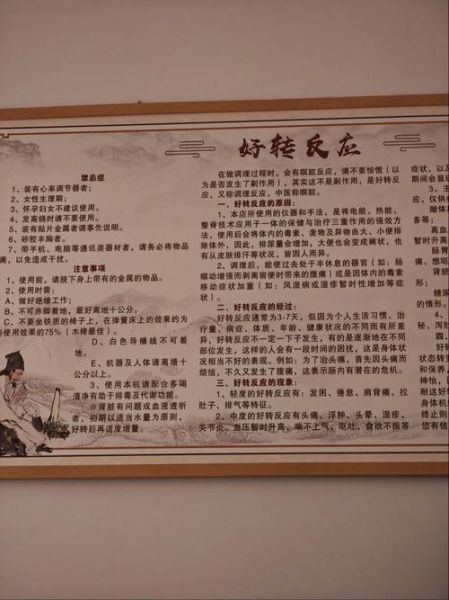 好转反应
禁忌症
1、装有心率调节器者；
2、女性生理期；
3、怀孕妇女不建议使用。
4、发高烧时请不要使用。
5、装有贴片金属者请事先说明。
6、矽胶丰胸者。
7、带手机、电脑等通讯类器材者，请务必将物品
离，以免造成干扰。
注意事项
1、使用前，请脱下身上带有的金属的物品。
2、使用时需：
A、做好绝缘工作；
B、不可赤脚着地，最好离地十公分。
C、不要坐铁质的椅子上，在弹簧床上的效果约为
使用效果的75%（木椅最佳）。
D、白色导播线不可着
地。
E、机器及人体请离墙十
公分以上。
3、使用本机请配合多喝
清净有助于排毒及代谢功能。
※肾脏有问题或血液透析
者，初期以适当水量为原则，
好转后再适度增量。
在做调理过程时，会有瞑眩反应，请不要惊慌（以
为是否发生了副作用），其实这不是副作用，是好转反
应，又称调理反应，中医称瞑眩。
一、好转反应的原因：
1、本店所使用的仪器和手法，是将电能、热能、
整脊技术应用于一体的保健与治疗三重作用的强效方
法，使用后会将体内的毒素、废物及异物由大、小便排
除体外，因此，排尿量会增加，大便也会变成稀状，也
有从皮肤排汗等状况，皆因人而异。
2、调理后，能使过去处于半休息的器官（如：肠
蠕动增强而刺离宿便时带来的腹痛）或是因体内的毒素
移动症状加重（如：风湿病或湿疹暂时性增加等症
状）。
二、好转反应的经过：
好转反应通常为3-7天，但因为个人生活习惯、治
疗量、病症、体质、年龄、健康状况的不同而有所差
异，好转反应不一定一下子发生，有的是逐渐地在不同
部位发生，这样的人会有一段时间的困扰，这是身体状
况相当不好的表现。例如：为了治头痛，首先因头痛而
烦恼，不久又发生了腹痛，这表示肠内有潜在的危机。
三、好转反应的现象：
1、轻度的好转反应有：发困、倦怠、肩背痛、拉
肚子、排气等特征。
2、中度的好转反应有头痛、浮肿、头晕、湿疹、
关节炎、血压暂时升高、喘不上气，呕吐、食欲不振等